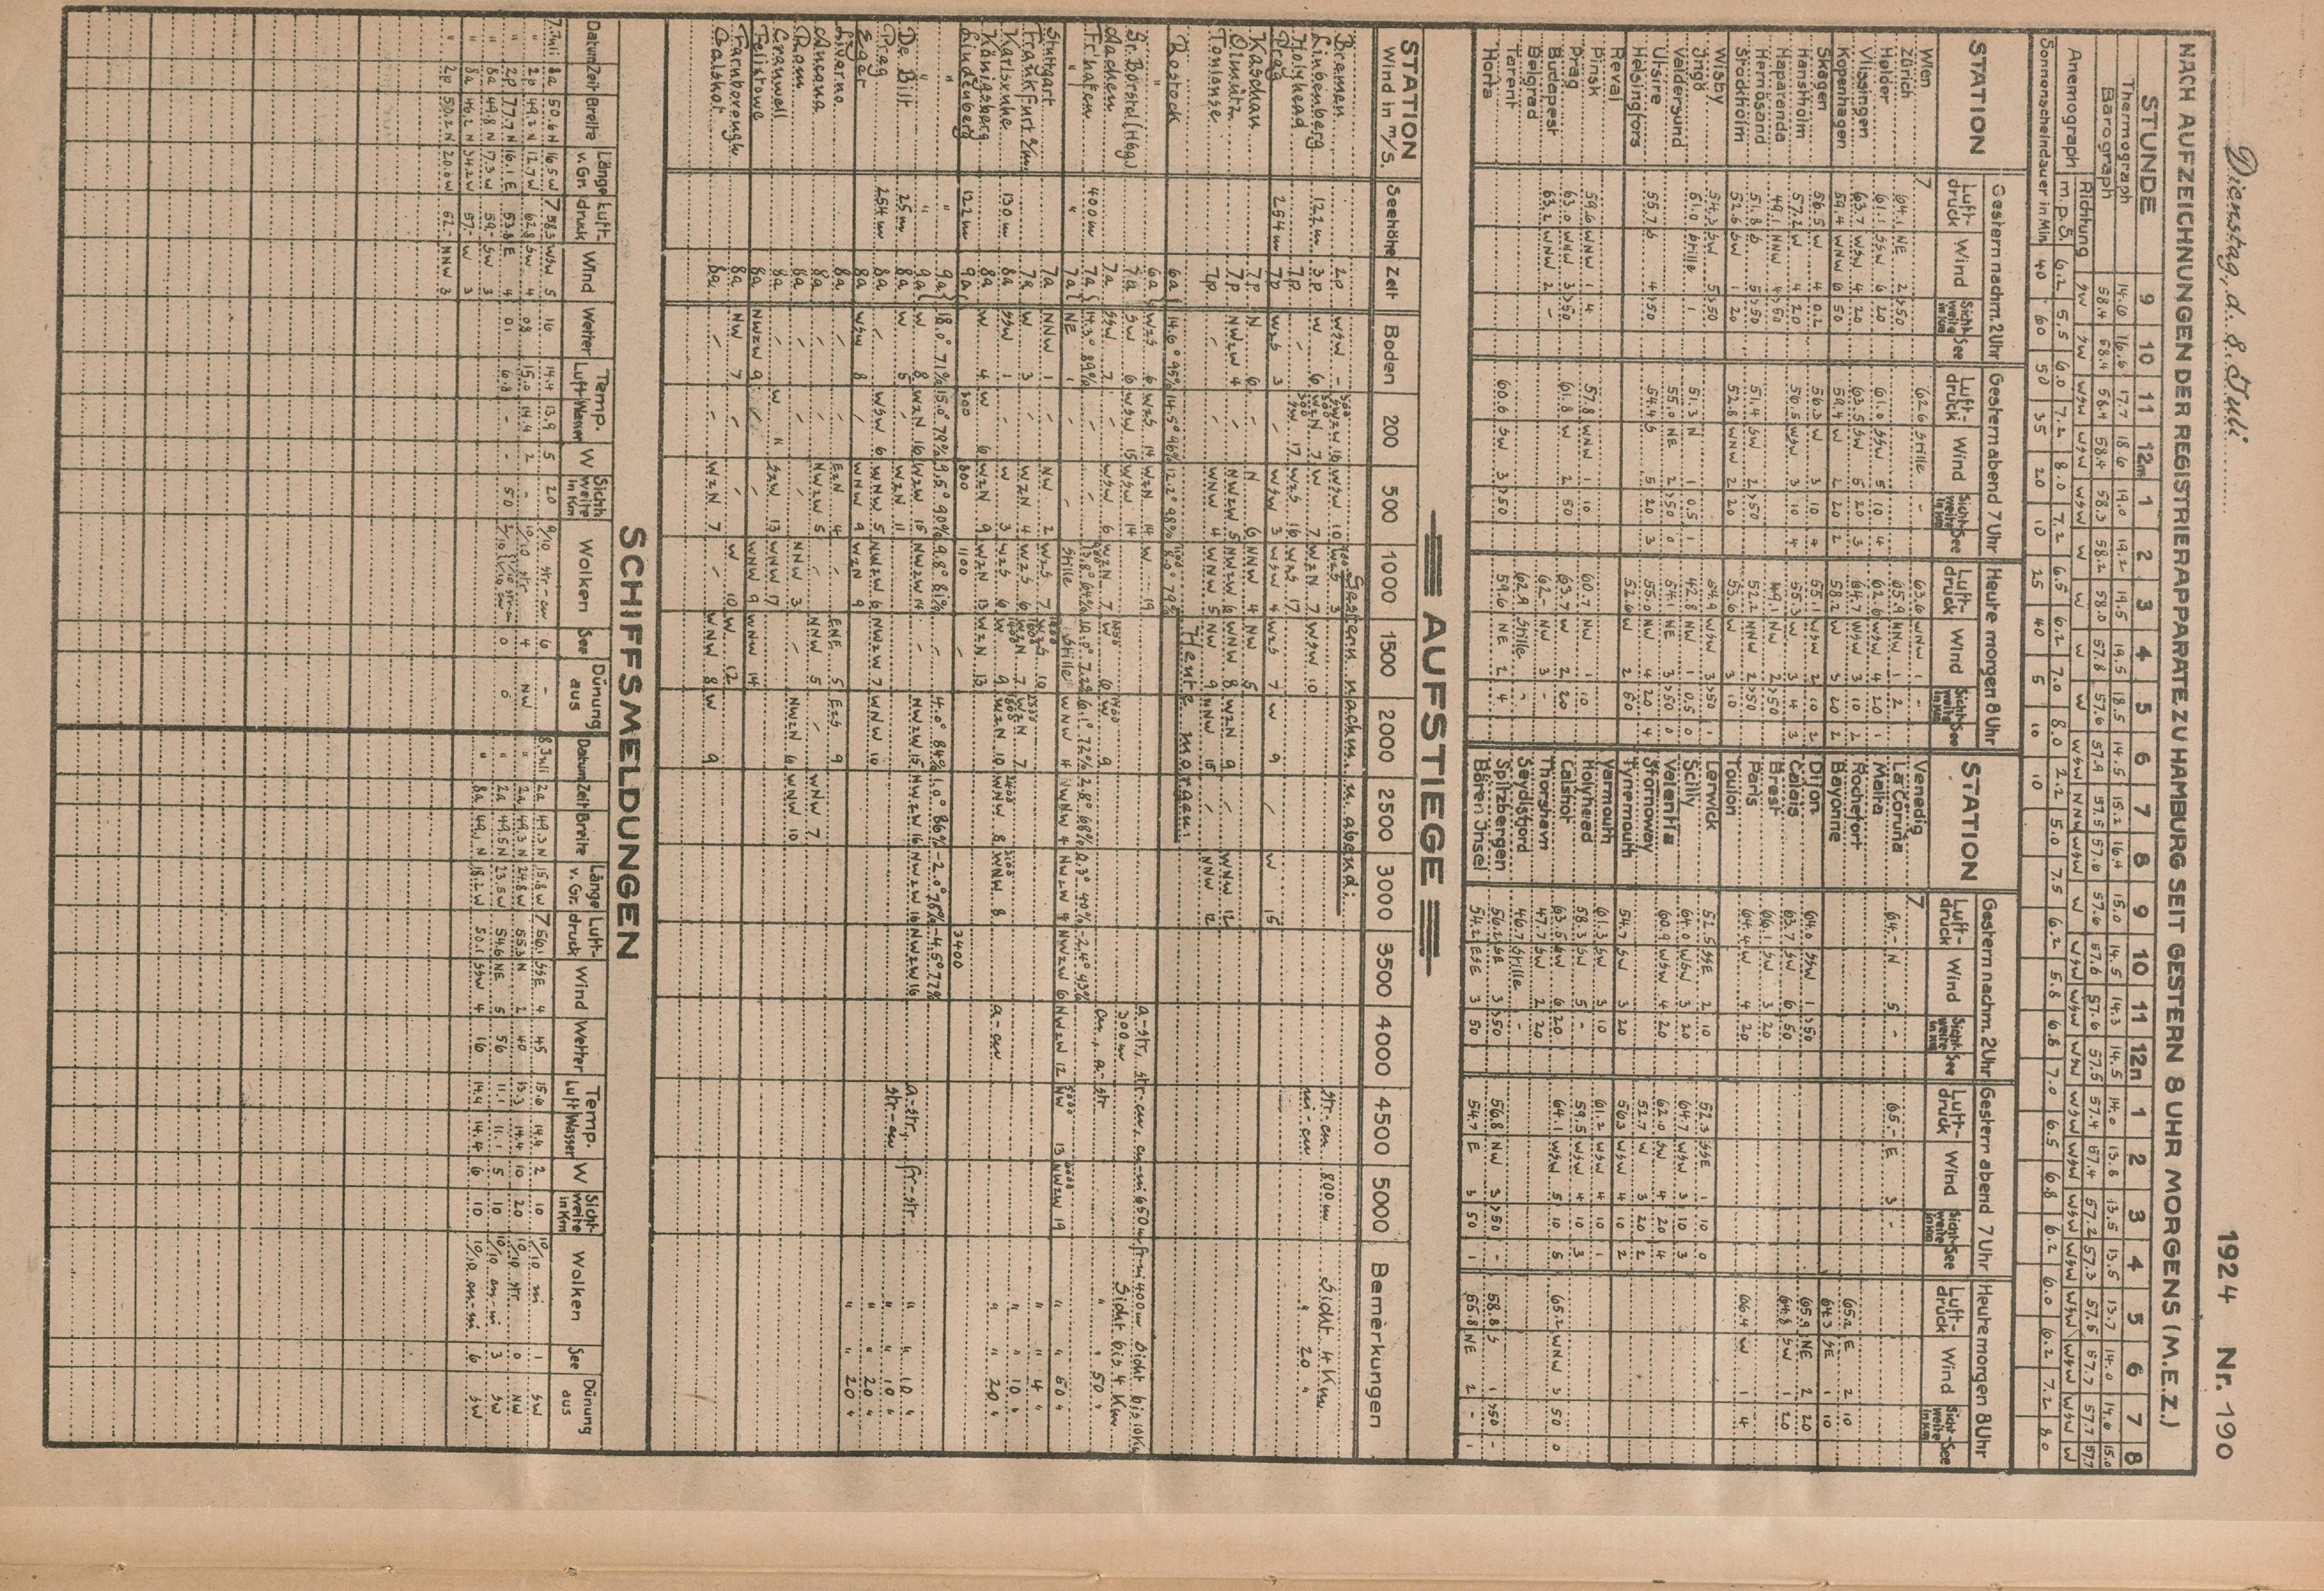 Dienstag, d. 8. Juli 1924 Nr. 190
NACH AUFZEICHNUNGEN DER REGISTRIERAPPARATE ZU HAMBURG SEIT GESTERN 8 UHR MORGENS (M.E.Z.)
STUNDE 9 10 11 12m 1 2 3 4 5 6 7 8 9 10 11 12n 1 2 3 4 5 6 7 8
Thermograph 14.6 16.6 17.7 18.6 19.0 19.2 19.5 19.5 18.5 14.5 15.2 16.4 15.0 14.5 14.3 14.5 14.0 13.8 13.5 13.5 13.7 14.0 14.6 15.0
Barograph 58.4 58.4 58.4 58.4 58.3 58.2 58.0 57.8 57.6 57.9 57.5 57.6 57.6 57.6 57.6 57.5 57.4 57.4 57.2 57.3 57.5 57.7 57.7 57.7
Anemograph Richtung SW SW WSW WSW WSW W W W W WSW NNW WSW W WSW WSW WSW WSW WSW WSW WSW WSW WSW WSW W
m.p.S. 6.2 5.5 6.0 7.2 8.0 7.2 6.5 6.2 7.0 8.0 2.2 5.0 7.5 6.2 5.8 6.8 7.0 6.5 6.8 6.2 6.0 6.2 7.2 8.0
Sonnenscheindauer in Min. 40 60 50 35 20 10 25 40 5 10 10
STATION Gestern nachm. 2 Uhr Gestern abend 7 Uhr Heute morgen 8 Uhr STATION Gestern nachm. 2 Uhr Gestern abend 7 Uhr Heute morgen 8 Uhr
Luft-druck Wind Sicht-weite in Km See Luft-druck Wind Sicht-weite in Km See Luft-druck Wind Sicht-weite in Km See
Wien 62.6 Stille - 63.6 WNW 1 - Venedig
Zürich 64.1 NE 2 >50 65.9 NNW 1 2 La Coruña 64.- N 5 - 65.- E 3 -
Helder 61.1 SSW 6 20 61.0 SSW 5 10 4 62.6 WSW 4 20 1 Malta
Vlissingen 63.7 WSW 4 20 63.5 SW 5 20 3 64.7 WSW 3 10 2 Rochefort 65.2 E 2 10
Kopenhagen 59.4 WNW 6 50 59.4 W 2 20 2 58.2 W 3 20 2 Bayonne 64.3 SE 1 10
Skagen 56.5 W 4 0.2 56.3 W 3 10 4 55.1 WSW 2 10 2 Dijon 64.0 SSW 1 >50 65.9 NE 2 20
Hanstholm 57.2 W 4 20 56.5 WSW 3 10 4 55.3 W 3 14 3 Calais 63.7 SW 6 50 64.8 SW 1 20
Haparanda 49.1 NNW 4 >50 49.1 NW 2 >50 Brest 66.1 SW 3 20
Hernösand 51.8 S 5 >50 51.4 SW 2 >50 52.2 NNW 2 >50 Paris 64.4 W 4 20 66.4 W 1 4
Stockholm 52.6 SW 1 20 52.8 WNW 2 20 53.6 W 3 10 Toulon
Wisby 54.3 SW 5 >50 54.9 WSW 3 >50 1 Lerwick 52.5 SSE 2 10 52.3 SSE 1 10 0
Ingö 51.0 Stille 1 51.3 N 1 0.5 1 42.8 NW 1 0.5 0 Scilly 64.0 WSW 3 20 64.7 WSW 3 10 3
Valdersund 55.0 NE 2 >50 0 54.1 NE 3 >50 0 Valentia 60.9 WSW 4 20 62.0 SW 4 20 4
Utsire 55.7 S 4 >50 54.4 S 5 20 3 55.0 NW 4 20 4 Stornoway 52.7 W 3 20 2
Helsingfors 52.6 W 2 60 Tynemouth 54.7 SW 3 20 56.3 WSW 4 10 2
Reval Yarmouth 61.3 SW 3 10 61.2 WSW 4 10 1
Pinsk 59.6 WNW 1 4 57.8 WNW 1 10 60.7 NW 1 10 Holyhead 58.3 SW 5 - 59.5 WSW 4 10 3
Prag 63.0 WNW 3 >50 61.8 W 2 50 63.7 W 2 20 Calshot 63.5 SW 6 20 64.1 WSW 5 10 5 65.2 WNW 3 50 0
Budapest 63.2 WNW 2 - 62.- NW 3 - Thorshavn 47.7 SW 2 20
Belgrad 62.9 Stille - Seydisfjord 46.7 Stille -
Tarent 60.6 SW 3 >50 59.6 NE 2 4 Spitzbergen 56.2 SE 3 >50 56.8 NW 3 >50 - 58.8 S 1 >50 -
Horta Bären Insel 54.2 ESE 3 50 54.7 E 3 50 1 55.8 NE 2 - 1
AUFSTIEGE
STATION Wind in m/s. Seehöhe Zeit Boden 200 500 1000 1500 2000 2500 3000 3500 4000 4500 5000 Bemerkungen
Gestern nachm. u. abend:
Bremen 2p WSW - WSW 10 3
Linbenberg 122m 3p W 6 W 7 W 7 WzN 7 WSW 10 str-cu 800m Sicht 4 Km
Holyhead 7p 17 WzS 16 WzS 17 ni-cu " 20 "
Prag 254m 7p WzS 3 - WSW 3 WSW 4 WzS 7 W 9 / W 15
Kaschau 7p N 6 - N 6 NNW 4 NW 5
Olmütz 7p NWzW 4 - NWzW 5 NWzW 6 WNW 8 WzN 9 / WNW 12
Tonianse 7p - - WNW 4 WNW 5 NW 9 NNW 15 / NNW 12
Heute morgen:
Rostock 6a 14.6° 95% 14.5° 96% 12.2° 98% 8.0° 79%
" 6a WzS 6 WzS 14 WzN 14 W 19
Gr. Borstel (Hbg) 7a SW 6 WSW 15 WSW 14 a-str, str-cu, cu-ni 650m, fr-ni 400m Sicht bis 10 Km
Aachen 7a SSW 7 - WSW 6 WzN 7 W 6 W 9 300m Sicht bis 4 Km
Fr'hafen 400m 7a 14.3° 89% 13.8° 64% 10.0° 72% 6.1° 72% 2.8° 68% 0.3° 40% -2.4° 43% cu, a-str " " 50 "
" " 7a NE 1 - Stille Stille WNW 4 WNW 4 NWzW 9 NWzW 6 NWzW 12 NW 13 NWzW 19 " " 60 "
Stuttgart 7a NNW 1 NW 2 WzS 7 10 " " 4 "
Frankfurt a/m. 7a W 3 WzN 4 WzS 6 WzN 7 WzN 7 " " 10 "
Karlsruhe 130m 8a SSW 1 W 3 WzS 6 W 9 WzN 10 WNW 8 WNW 8 a-cu " " 20 "
Königsberg 8a W 4 W 6 WzN 9 WzN 13 WzN 13
Lindenberg 122m 9a 300 800 1100 - 3400
" " 9a 18.0° 71% 15.0° 79% 9.5° 90% 9.8° 81% - 4.0° 84% 1.0° 86% -2.0° 78% -4.5° 77%
" " 9a W 8 WzN 16 WzW 15 NWzW 14 - NWzW 15 NWzW 16 NWzW 16 NWzW 16
De Bilt 25m 8a W 5 WzN 11 a-str, fr-str " " 10 "
Prag 254m 8a / WSW 6 WNW 5 NWzW 6 NWzW 7 WNW 10 str-cu " " 10 "
Eger 8a WSW 8 / WNW 9 WzN 9 " " 20 "
Livorno 8a / / EzN 4 ENE 5 EzS 9 " " 20 "
Ancona 8a / / NWzW 5 / NNW 5 / WNW 7
Rom 8a / / NNW 3 - NWzN 6 WNW 10
Cranwell 8a / W 11 SzW 13 WNW 17
Felixtowe 8a NWzW 9 / / WNW 9 WNW 14
Farnborough 8a NW 7 - / W 10 W 12
Calshot 8a / / WzN 7 / WNW 8 W 9
SCHIFFSMELDUNGEN
Datum Zeit Breite Länge v. Gr. Luft-druck Wind Wetter Temp. Luft Wasser W Sichtweite in Km Wolken See Dünung aus Datum Zeit Breite Länge v. Gr. Luft-druck Wind Wetter Temp. Luft Wasser W Sichtweite in Km Wolken See Dünung aus
7. Juli 8a 50.6 N 16.5 W 758.3 WSW 5 16 14.4 13.9 5 20 9/10 str-cu 6 - 8. Juli 2a 49.3 N 15.8 W 756.1 SSE 4 45 15.6 14.4 2 10 10/10 ni 1 SW
" 2p 49.3 N 12.7 W 62.8 SW 4 08 15.0 14.4 2 - 10/10 str 4 NW " 2a 49.3 N 24.8 W 55.3 N 2 40 13.3 14.4 10 20 10/10 str. 0 NW
" 2p 77.7 N 16.1 E 53.8 E 4 01 6.8 - - 50 0 0 " 2a 49.5 N 23.5 W 54.6 NE 5 56 11.1 11.1 5 10 10/10 cu-ni 3 SW
" 8a 49.8 N 7.3 W 59.- SW 3 " 8a 49.1 N 18.2 W 50.1 SSW 4 16 14.4 14.4 6 10 10/10 cu-ni 6 SW
" 8a 46.2 N 34.2 W 57.- W 3
" 2p 50.2 N 20.0 W 62.- NNW 3